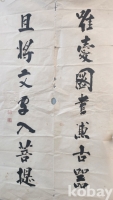 唯愛圖書兼古器
且將文字入菩提
kobay